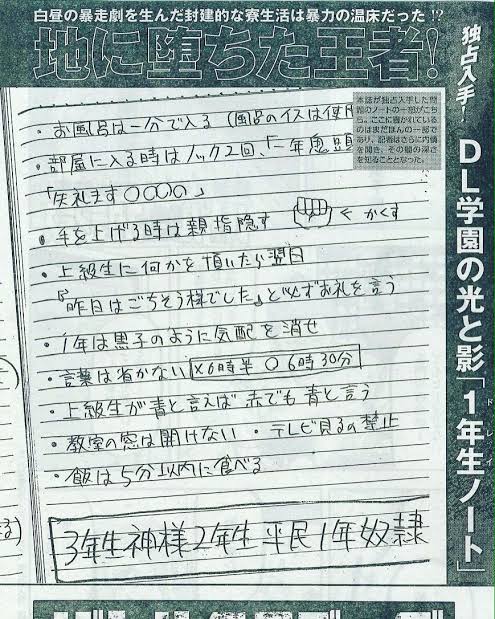 白昼の暴走劇を生んだ封建的な寮生活は暴力の温床だった!?
地に堕ちた王者!
独占入手!
DL学園の光と影「1年生ノート」
ドレイ
本誌が独占入手した問
題のノートの一部がこち
ら。ここに書かれている
のはまだほんの一部で
あり、記者はさらに内情
を聞き、その闇の深さ
を知ることとなった。
・お風呂は一分で入る (風呂のイスは使用
・部屋に入る時はノック2回、「一年鬼頭
「失礼ます○○○の」
・手を上げる時は親指隠す ← かくす
・上級生に何かを頂いたら翌日
『昨日はごちそう様でした』と必ずお礼を言う
・1年は黒子のように気配を消せ
・言葉は省かない ×6時半 ○6時30分
・上級生が青と言えば赤でも青と言う
・教室の窓は開けない ・テレビ見るの禁止
・飯は5分以内に食べる
3年生神様2年生平民1年奴隷